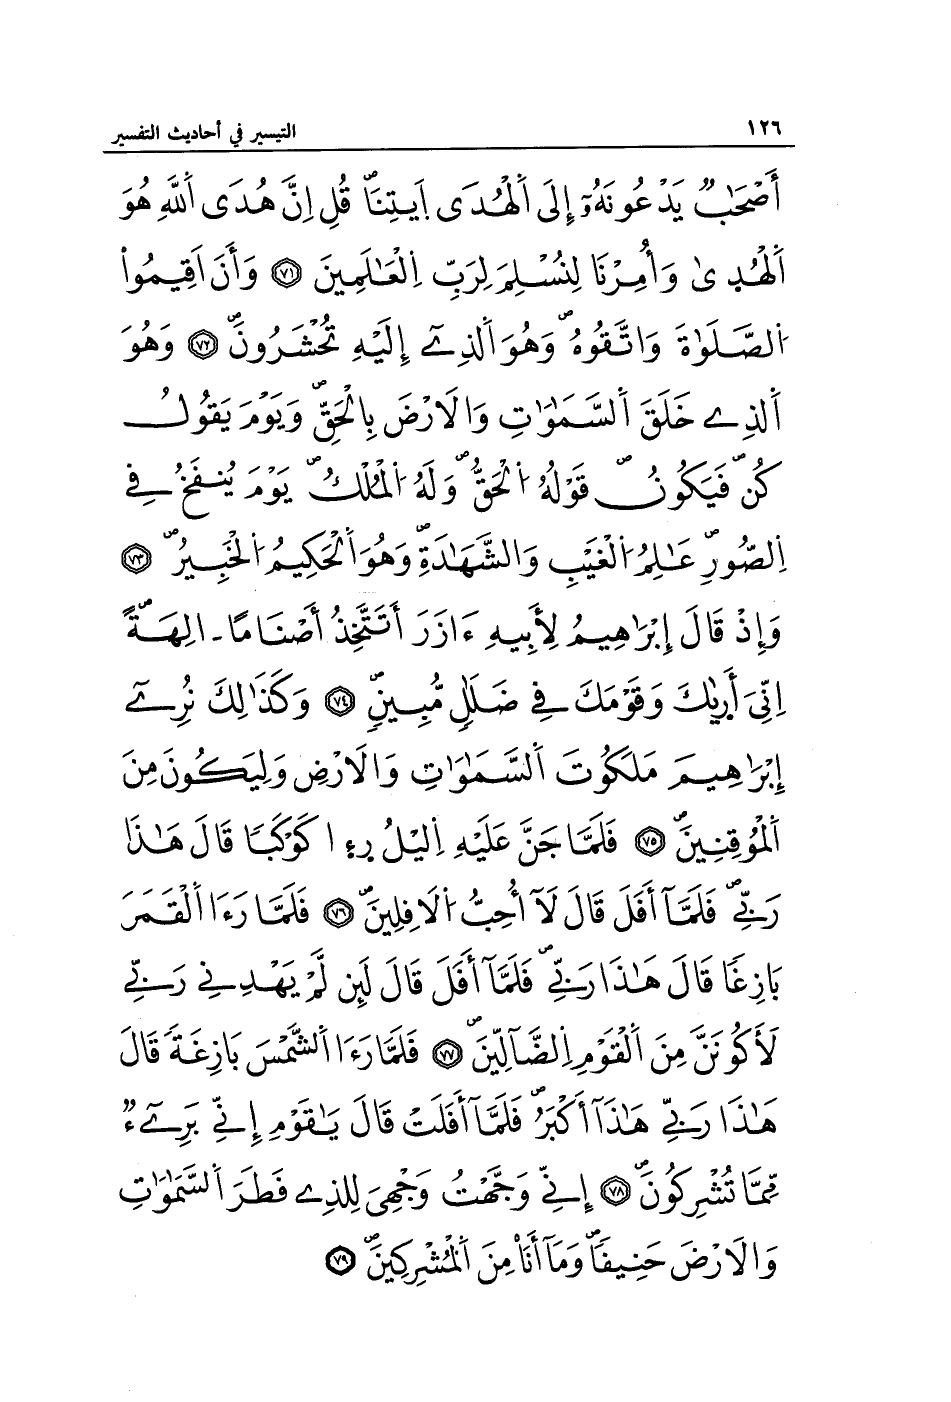 ١٢٦ التيسير في أحاديث التفسير
أَصْحَٰبٌ يَدْعُونَهُۥٓ إِلَى اَ۬لْهُدَى اَ۪يتِنَاۖ قُلِ اِنَّ هُدَى اَ۬للَّهِ هُوَ
اَ۬لْهُد۪ىٰ وَأُمِرْنَا لِنُسْلِمَ لِرَبِّ اِ۬لْعَٰلَمِينَ ٧١ وَأَنَ اَقِيمُواْ
اُ۬لصَّلَوٰةَ وَاتَّقُوهُۖ وَهُوَ اَ۬لذِےٓ إِلَيْهِ تُحْشَرُونَۖ ٧٢ وَهُوَ
اَ۬لذِے خَلَقَ اَ۬لسَّمَٰوَٰتِ وَالَارْضَ بِالْحَقِّۖ وَيَوْمَ يَقُولُ
كُنۖ فَيَكُونُۖ قَوْلُهُ اُ۬لْحَقُّۖ وَلَهُ اُ۬لْمُلْكُۖ يَوْمَ يُنفَخُ فِے
اِ۬لصُّورِۖ عَٰلِمُ اُ۬لْغَيْبِ وَالشَّهَٰدَةِۖ وَهُوَ اَ۬لْحَكِيمُ اُ۬لْخَبِيرُۖ ٧٣
وَإِذْ قَالَ إِبْرَٰهِيمُ لِأَبِيهِ ءَازَرَ أَتَتَّخِذُ أَصْنَاماً ـ اٰلِهَةًۖ
اِنِّيَ أَر۪ىٰكَ وَقَوْمَكَ فِے ضَلَٰلٖ مُّبِينٖۖ ٧٤ وَكَذَٰلِكَ نُرِےٓ
إِبْرَٰهِيمَ مَلَكُوتَ اَ۬لسَّمَٰوَٰتِ وَالَارْضِ وَلِيَكُونَ مِنَ
اَ۬لْمُوقِنِينَۖ ٧٥ فَلَمَّا جَنَّ عَلَيْهِ اِ۬ليْلُ ر۪ء۪ا كَوْكَباٗ قَالَ هَٰذَا
رَبِّےۖ فَلَمَّآ أَفَلَ قَالَ لَآ أُحِبُّ اُ۬لَافِلِينَۖ ٧٦ فَلَمَّا رَءَا اَ۬لْقَمَرَ
بَازِغاٗ قَالَ هَٰذَا رَبِّےۖ فَلَمَّآ أَفَلَ قَالَ لَئِن لَّمْ يَهْدِنِے رَبِّے
لَأَكُونَنَّ مِنَ اَ۬لْقَوْمِ اِ۬لضَّآلِّينَۖ ٧٧ فَلَمَّا رَءَا اَ۬لشَّمْسَ بَازِغَةٗ قَالَ
هَٰذَا رَبِّے هَٰذَآ أَكْبَرُۖ فَلَمَّآ أَفَلَتْ قَالَ يَٰقَوْمِ إِنِّے بَرِےٓءٌ
مِّمَّا تُشْرِكُونَۖ ٧٨ إِنِّے وَجَّهْتُ وَجْهِيَ لِلذِے فَطَرَ اَ۬لسَّمَٰوَٰتِ
وَالَارْضَ حَنِيفاٗۖ وَمَآ أَنَاْ مِنَ اَ۬لْمُشْرِكِينَۖ ٧٩